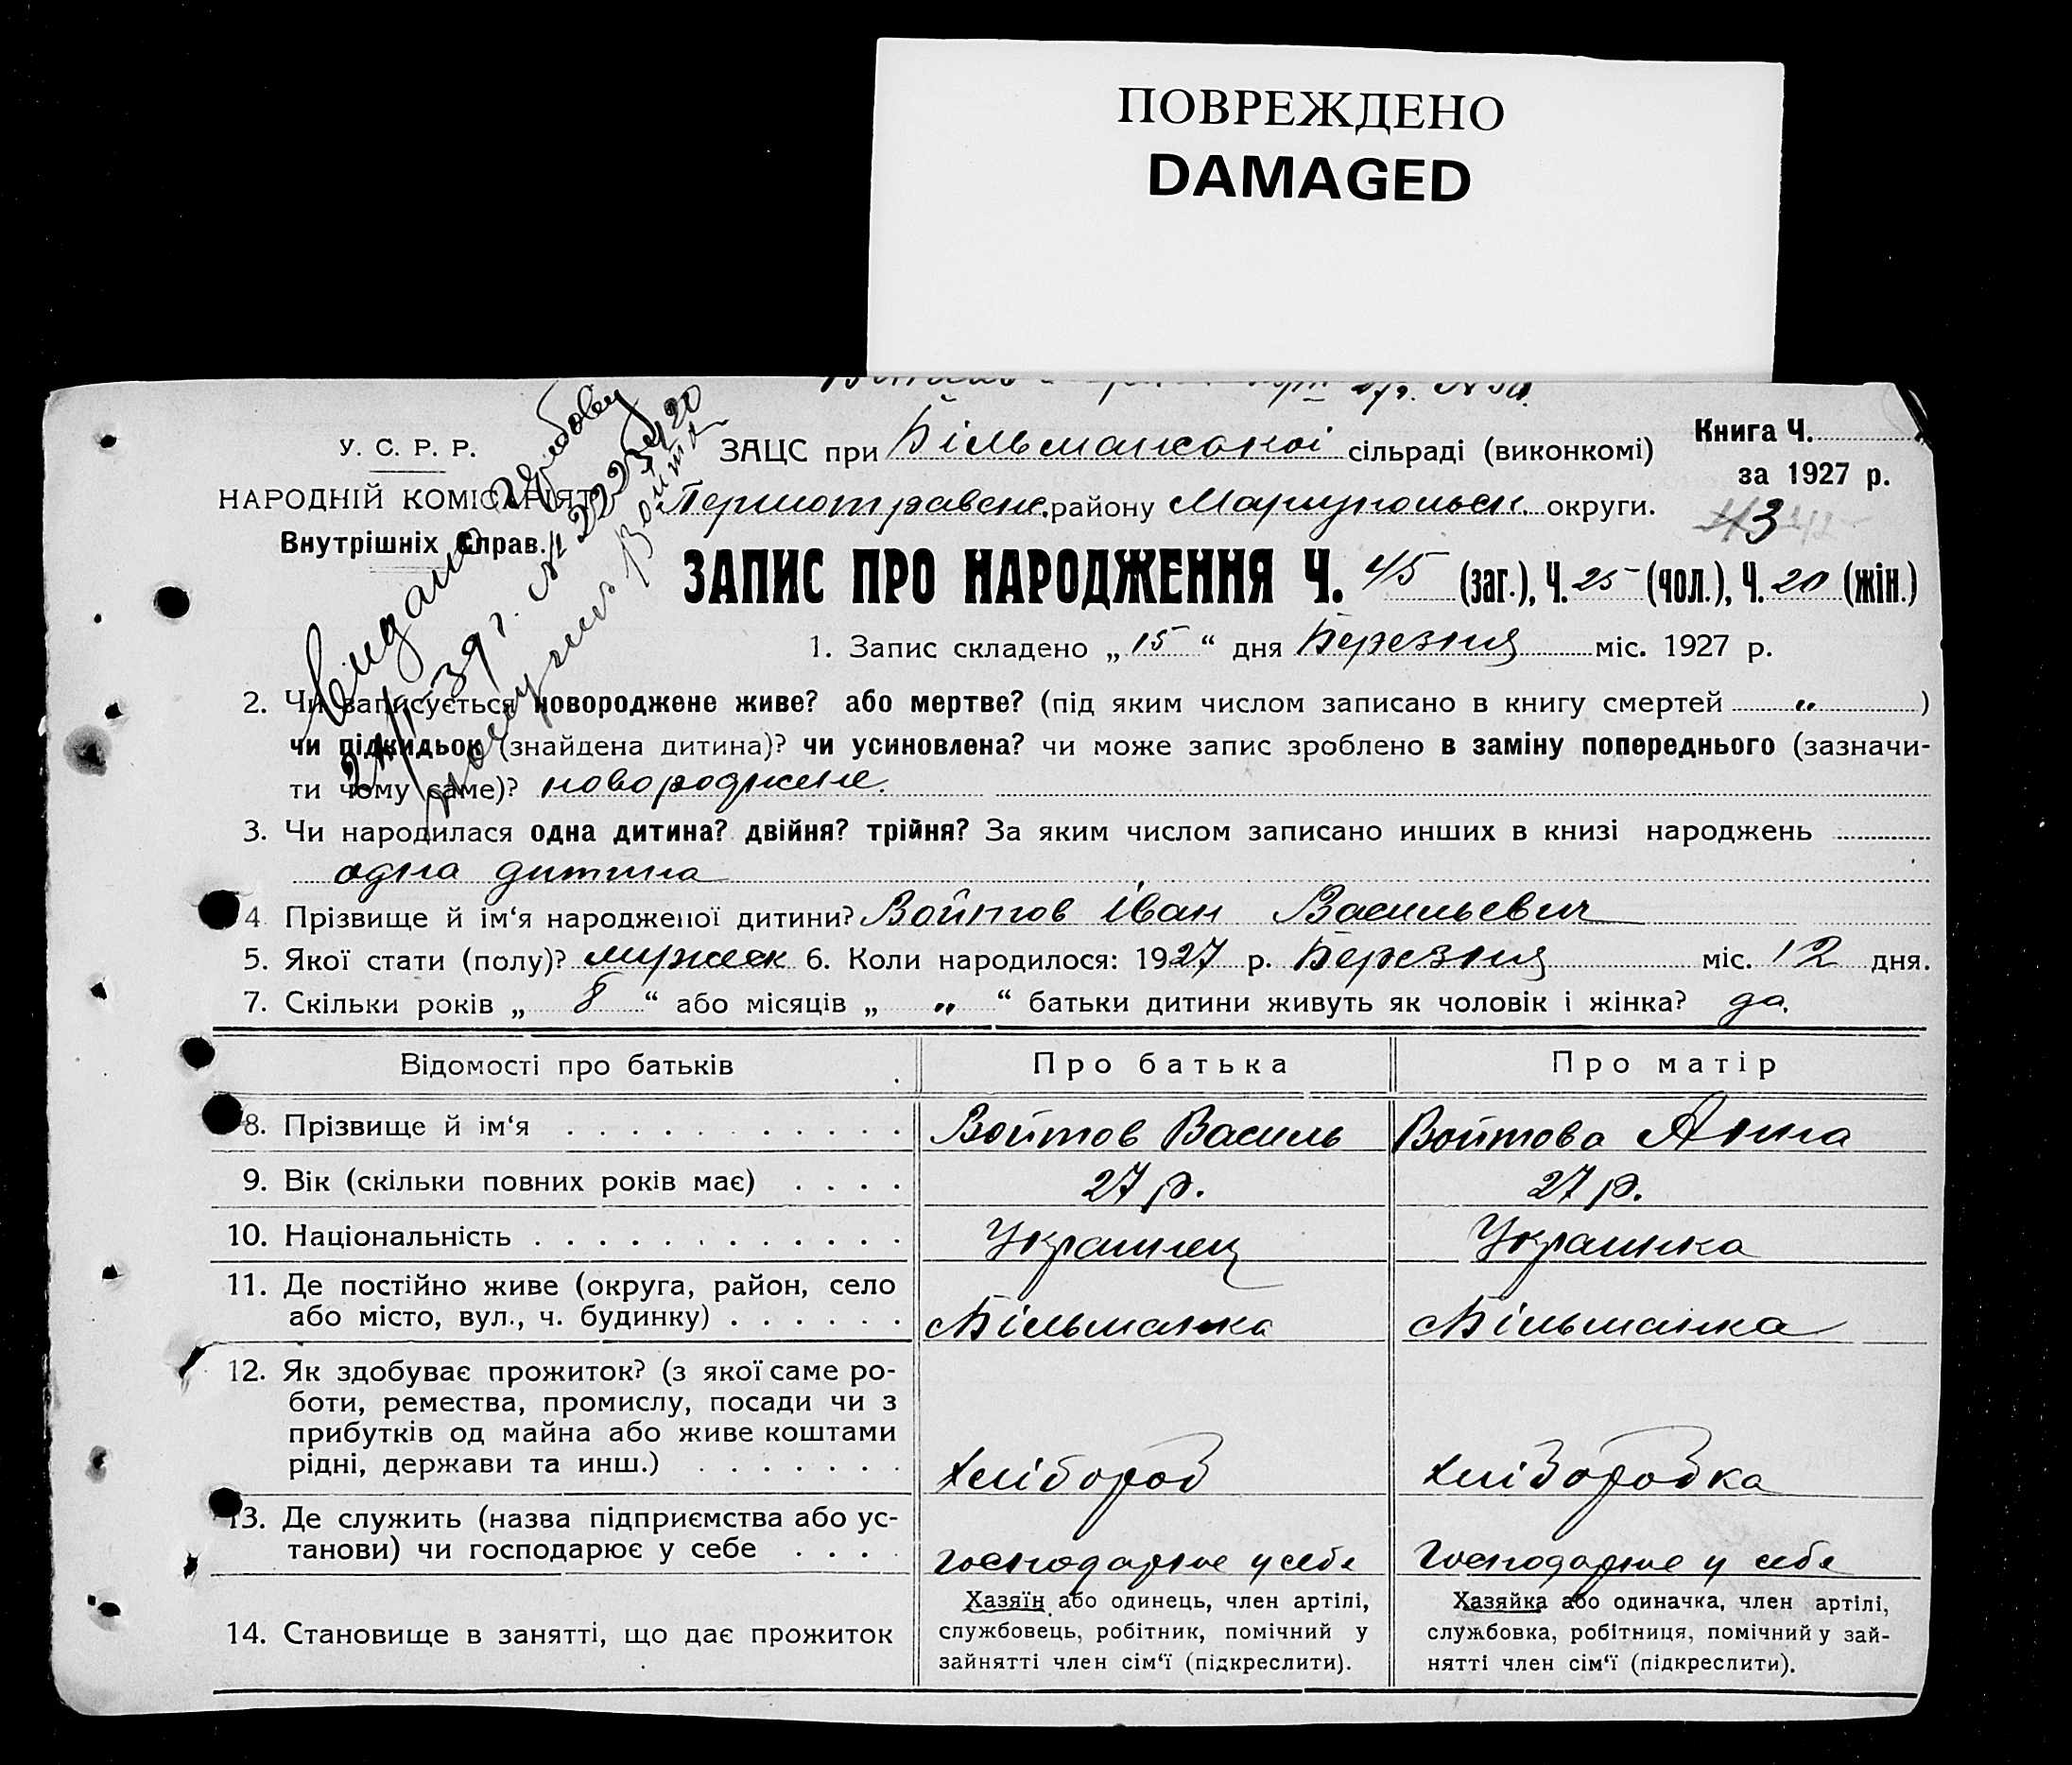 ПОВРЕЖДЕНО
DAMAGED
У. С. Р. Р.
НАРОДНІЙ КОМІСАРІЯТ
Внутрішніх Справ.
ЗАЦС при Більманської сільраді (виконкомі)
Першотравенс. району Маріупольск. округи.
Книга Ч.
за 1927 р.
43
Видано
21/II 39 г. № 222
получив Войтов
ЗАПИС ПРО НАРОДЖЕННЯ Ч. 45 (заг.), Ч. 25 (чол.), Ч. 20 (жін.)
1. Запис складено „ 15 “ дня Березня міс. 1927 р.
2. Чи записується новороджене живе? або мертве? (під яким числом записано в книгу смертей „ )
чи підкидьок (знайдена дитина)? чи усиновлена? чи може запис зроблено в заміну попереднього (зазначи-
ти чому саме)? новороджене.
3. Чи народилася одна дитина? двійня? трійня? За яким числом записано инших в книзі народжень
одна дитина
4 Прізвище й ім‘я народженої дитини? Войтов Іван Васильевич
5. Якої стати (полу)? мужеск 6. Коли народилося: 1927 р. Березня міс. 12 дня.
7. Скільки років „ 8 “ або місяців „ „ “ батьки дитини живуть як чоловік і жінка? да.
Відомості про батьків Про батька Про матір
8. Прізвище й ім‘я Войтов Василь Войтова Анна
9. Вік (скільки повних років має) 27 р. 27 р.
10. Національність Украинец Украинка
11. Де постійно живе (округа, район, село
або місто, вул., ч. будинку) Більманка Більманка
12. Як здобуває прожиток? (з якої саме ро-
боти, ремества, промислу, посади чи з
прибутків од майна або живе коштами
рідні, держави та инш.) Хлібороб Хліборобка
13. Де служить (назва підприємства або ус-
танови) чи господарює у себе господарює у себе господарює у себе
14. Становище в занятті, що дає прожиток
Хазяїн або одинець, член артілі,
службовець, робітник, помічний у
зайнятті член сім‘ї (підкреслити).
Хазяйка або одиначка, член артілі,
службовка, робітниця, помічний у зай-
нятті член сім‘ї (підкреслити).